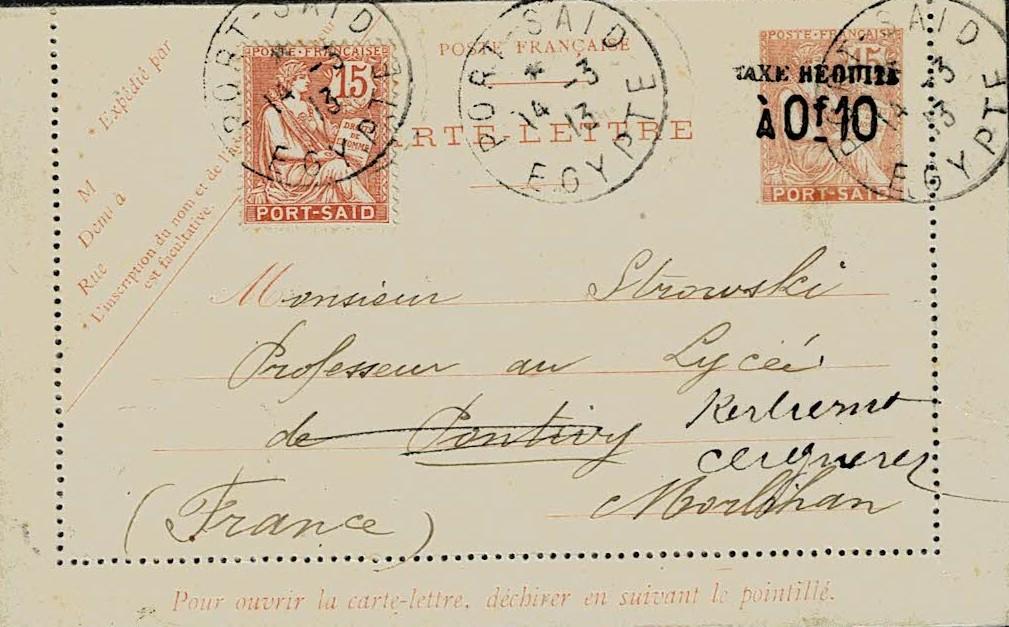 POSTE FRANÇAISE
15
DROITS
DE
L'HOMME
PORT-SAÏD
PORT-SAID
* 14 -3 13
EGYPTE
POSTE FRANÇAISE
CARTE-LETTRE
PORT-SAID
* 14 -3 13
EGYPTE
POSTE FRANÇAISE
15
TAXE RÉDUITE
À 0f.10
PORT-SAID
PORT-SAID
14 -3 13
EGYPTE
* Expédié par
M
Demt à
Rue
* L'inscription du nom et de l'
est facultative.
Monsieur Strowski
Professeur au Lycée
de Pontivy
Morbihan
(France)
Pour ouvrir la carte-lettre, déchirer en suivant le pointillé.